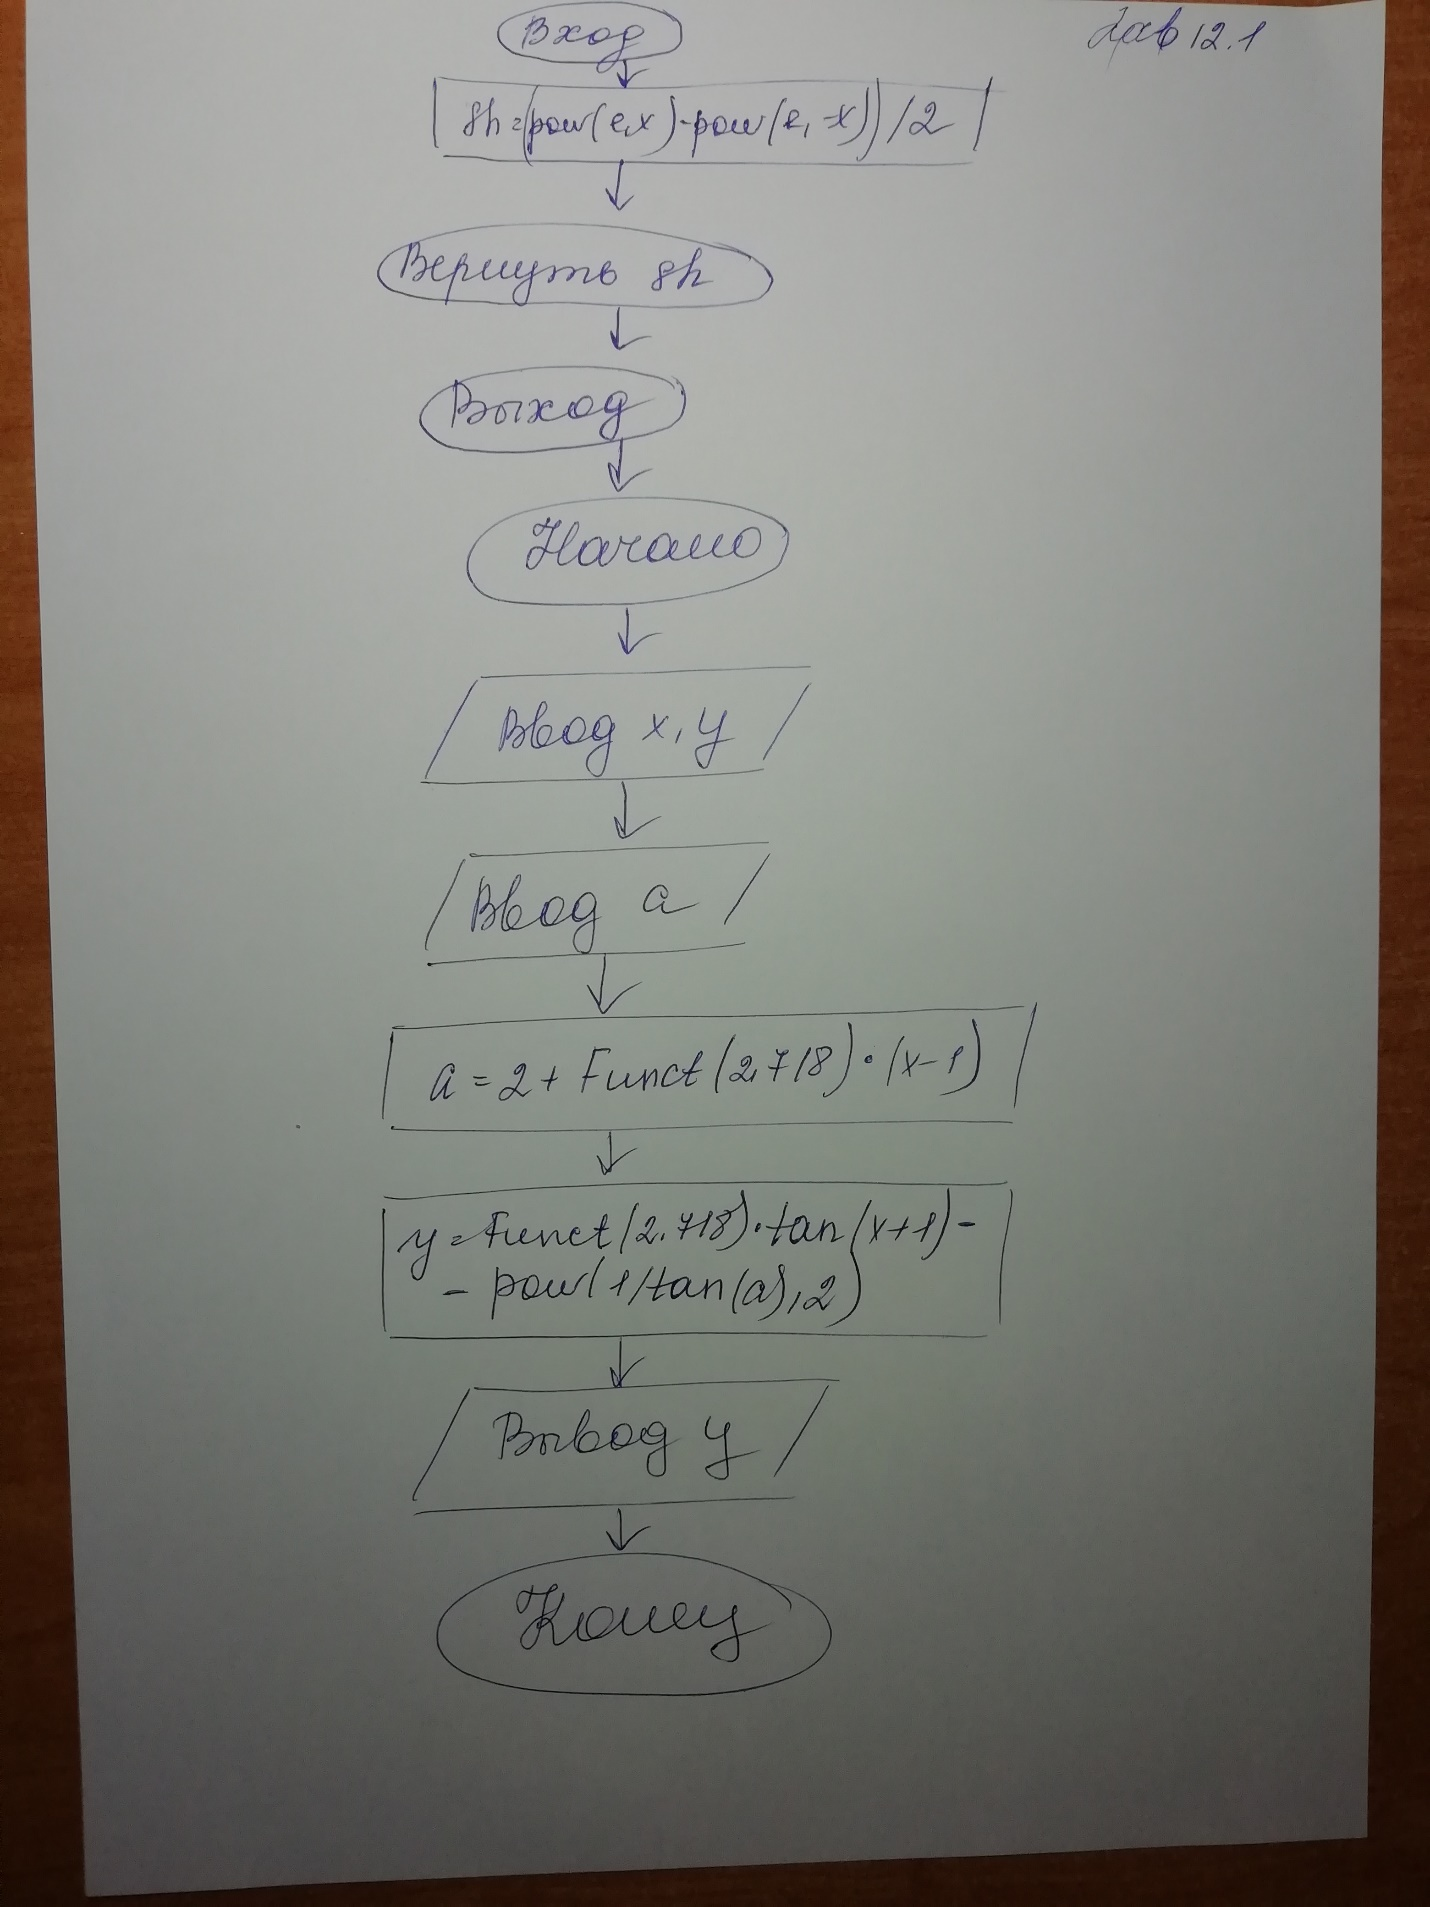 Лав 12.1
Вход
sh=(pow(e,x)-pow(e,-x))/2
Вернуть sh
Выход
Начало
Ввод x, y
Ввод a
a = 2 + Funct(2,718)·(x-1)
y = Funct(2.718)·tan(x+1)-
- pow(1/tan(a),2)
Вывод y
Конец